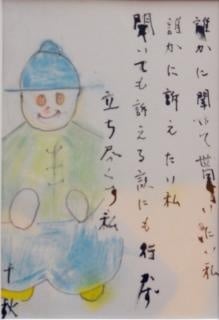 誰かに聞いて い私
誰かに訴えたい私
聞いても訴える にも行
立ち尽くす私
千秋